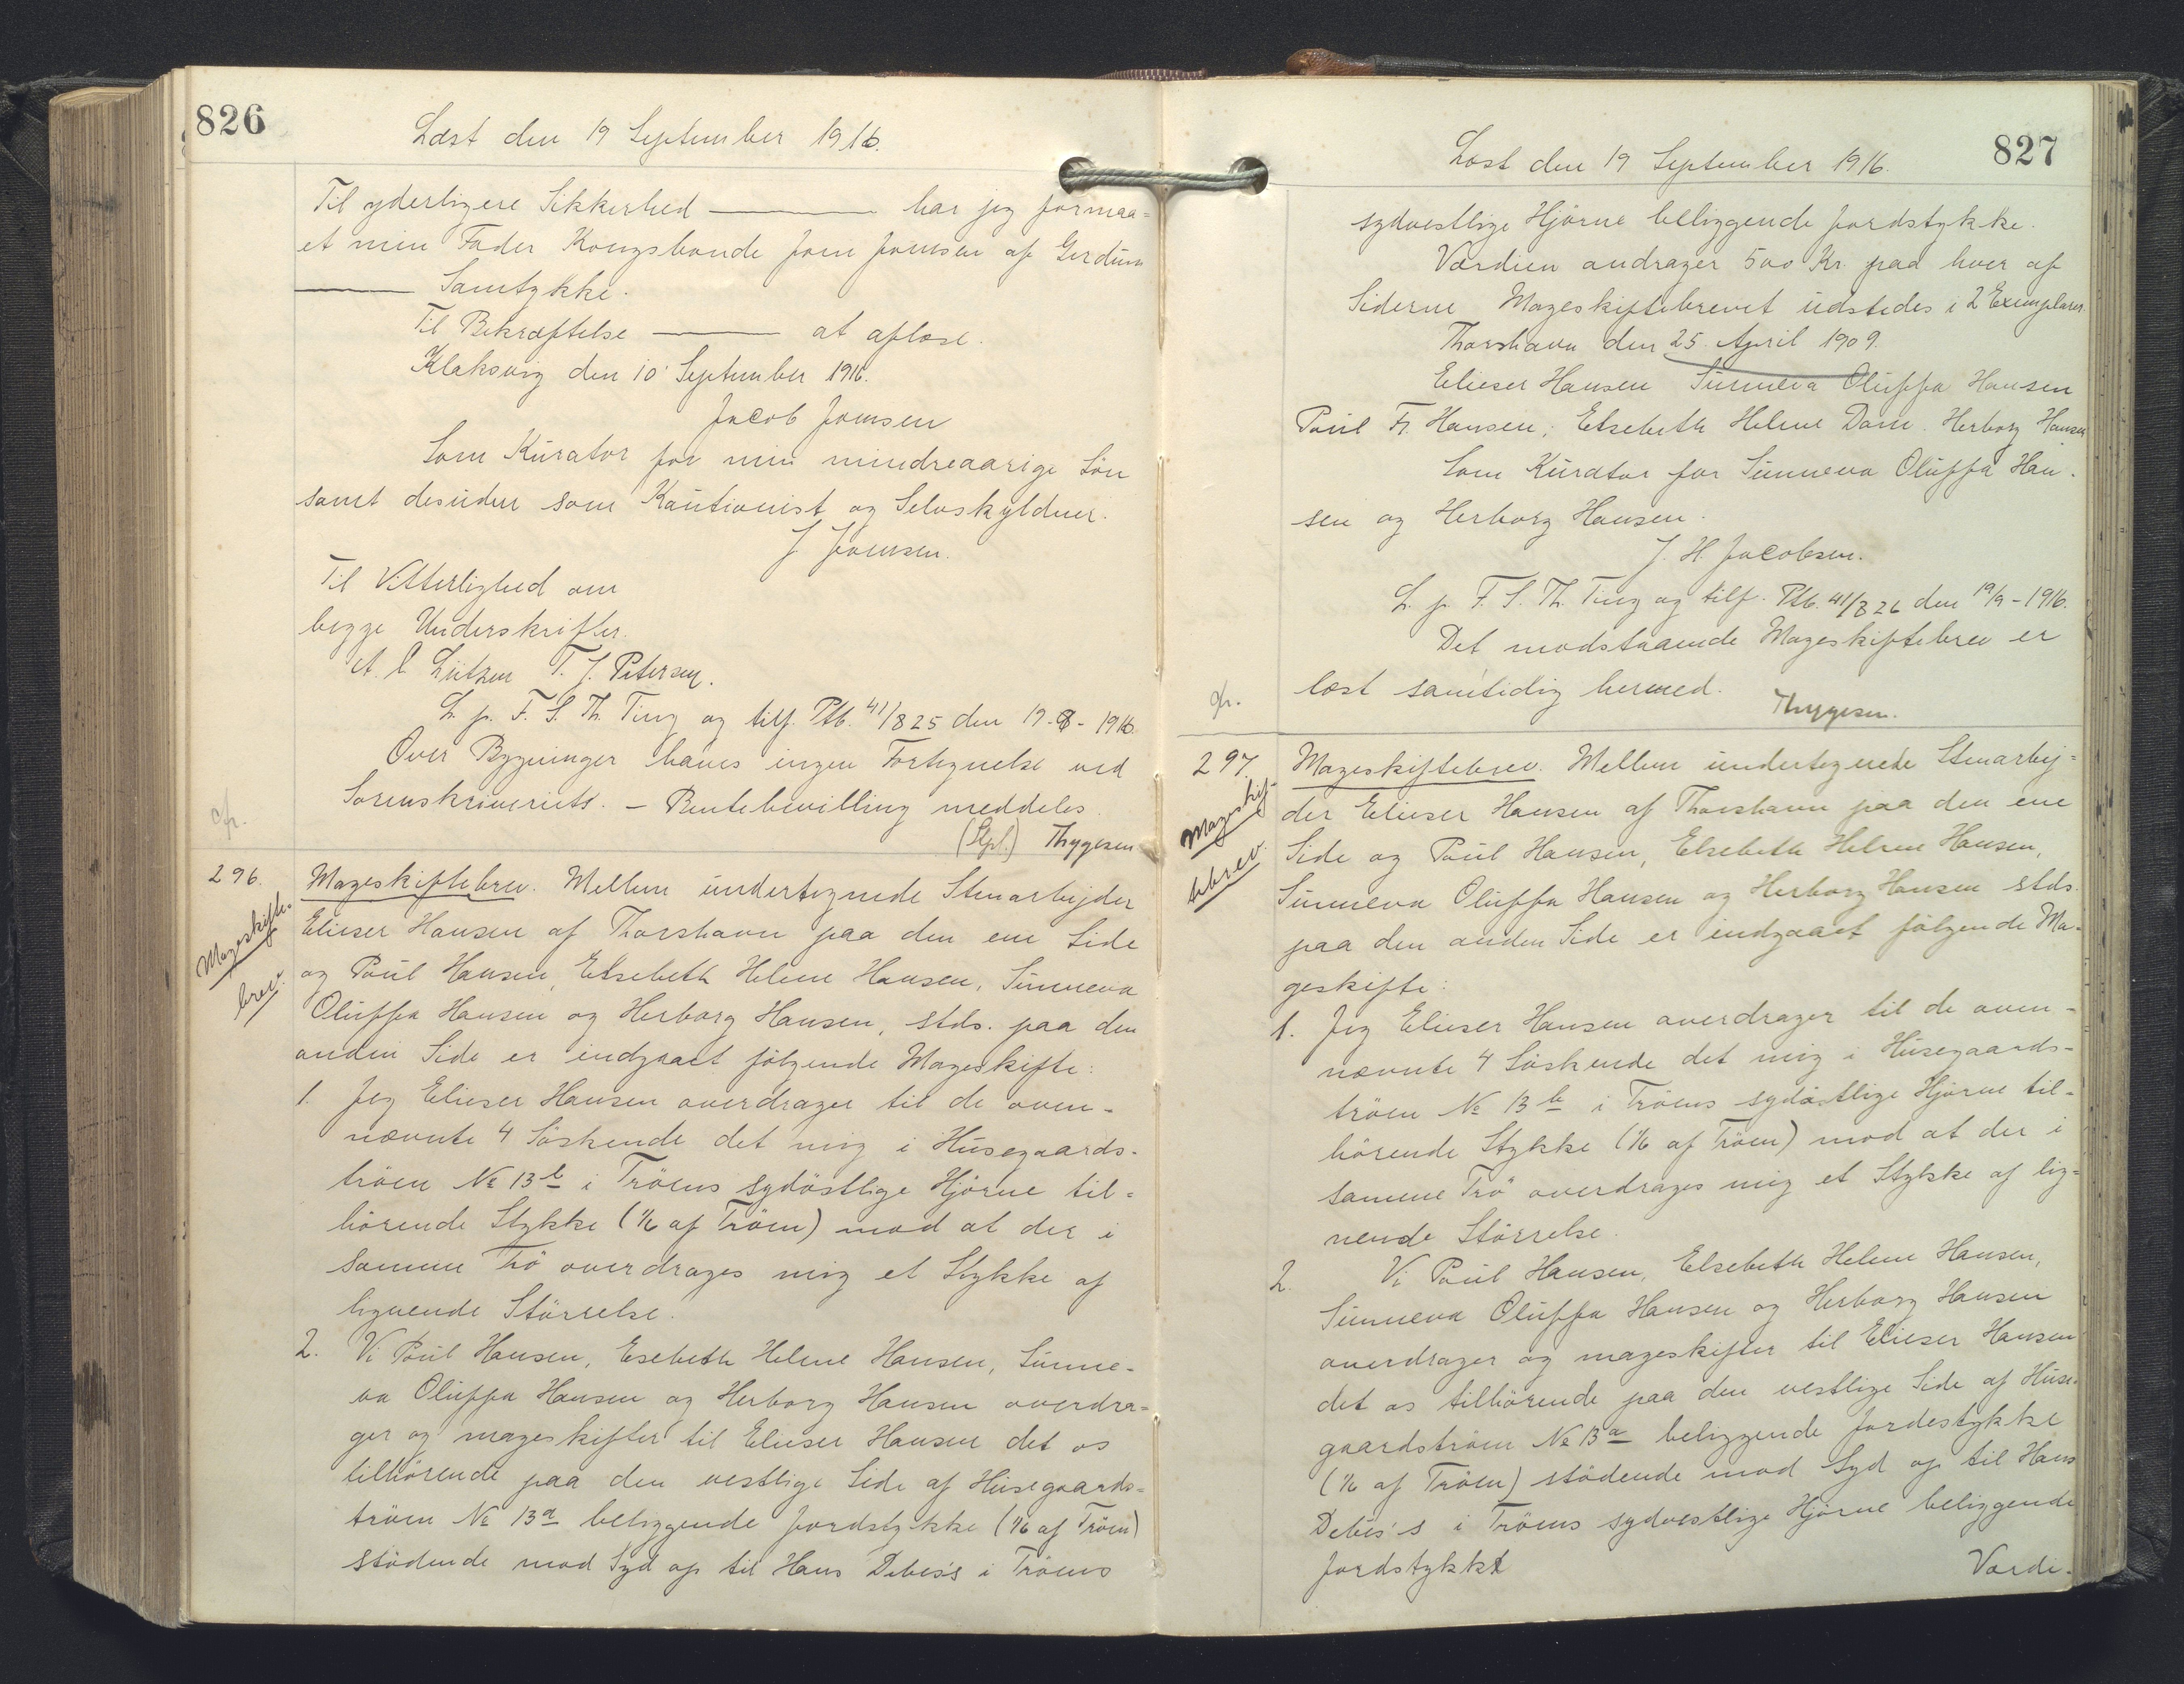 826
Læst den 19 September 1916.
Til yderligere Sikkerhed ——— har jeg formaa=
et min Fader Kongsbonde Joen Joensen af Gerdum
——— Samtykke.
Til Bekræftelse ——— at aflæse.
Klaksvig den 10' September 1916.
Jacob Joensen
Som Kurator for min mindreaarige Søn
samt desuden som Kautionist og Selvskyldner.
J Joensen.
Til Vitterlighed om
begge Underskrifter.
Lützen T. J. Petersen.
L. p. F. S. Th. Ting og tilf. Ptb. 41/825 den 19-9-1916
Over Bygninger haves ingen Fortegnelse ved
Sorenskriveriets. – Rentebevilling meddeles.
cfr.
(Stpl.) Thygesen
296.
Mageskifte-
brev.
Mageskiftebrev. Mellem undertegnede Stenarbejder
Elieser Hansen af Thorshavn paa den ene Side
og Poül Hansen, Elsebeth Helene Hansen, Sunneva
Oluffa Hansen og Herborg Hansen, stds. paa den
anden Side er indgaaet følgende Mageskifte:
1. Jeg Elieser Hansen overdrager til de oven-
nævnte 4 Søskende det mig i Husegaards-
trøen No 13b i Trøens sydøstlige Hjørne til-
hørende Stykke (1/6 af Trøen) mod at der i
samme Trø overdrages mig et Stykke af
lignende Størrelse.
2. Vi Poul Hansen, Esebeth Helene Hansen, Sunne-
va Oluffa Hansen og Herborg Hansen overdra=
ger og mageskifter til Elieser Hansen det os
tilhørende paa den vestlige Side af Husegaards=
trøen No 13a beliggende Jordstykke (1/6 af Trøen)
stødende mod Syd op til Hans Debes's i Trøens
827
Læst den 19 September 1916.
sydvestlige Hjørne beliggende Jordstykke.
Værdien andrager 500 Kr. paa hver af
Siderne Mageskiftebrevet udstedes i 2 Exemplarer.
Thorshavn den 25 April 1909.
Elieser Hansen Sunneva Oluffa Hansen
Poul Fr. Hansen, Elsebeth Helene Dam. Herborg Hansen
Som Kurator for Sunneva Oluffa Han-
sen og Herborg Hansen.
J. H. Jacobsen.
L. p. F. S. Th. Ting og tilf. Ptb. 41/826 den 19/9-1916.
Det modstaaende Mageskiftebrev er
læst samtidig hermed.
cfr.
Thygesen.
297.
Mageskif-
tebrev.
Mageskiftebrev. Mellem undertegnede Stenarbej=
der Elieser Hansen af Thorshavn paa den ene
Side og Poul Hansen, Elsebeth Helene Hansen,
Sunneva Oluffa Hansen og Herborg Hansen stds.
paa den anden Side er indgaaet følgende Ma-
geskifte:
1. Jeg Elieser Hansen overdrager til de oven-
nævnte 4 Søskende det mig i Husegaards-
trøen No 13b i Trøens sydøstlige Hjørne til-
hørende Stykke (1/6 af Trøen) mod at der i
samme Trø overdrages mig et Stykke af lig=
nende Størrelse.
2. Vi Poul Hansen, Elsebeth Helene Hansen,
Sunneva Oluffa Hansen og Herborg Hansen
overdrager og mageskifter til Elieser Hansen
det os tilhørende paa den vestlige Side af Huse-
gaardstrøen No 13a beliggende Jordestykke
(1/6 af Trøen) stødende mod Syd op til Hans
Debes's i Trøens sydvestlige Hjørne beliggende
Jordstykke
Værdi-